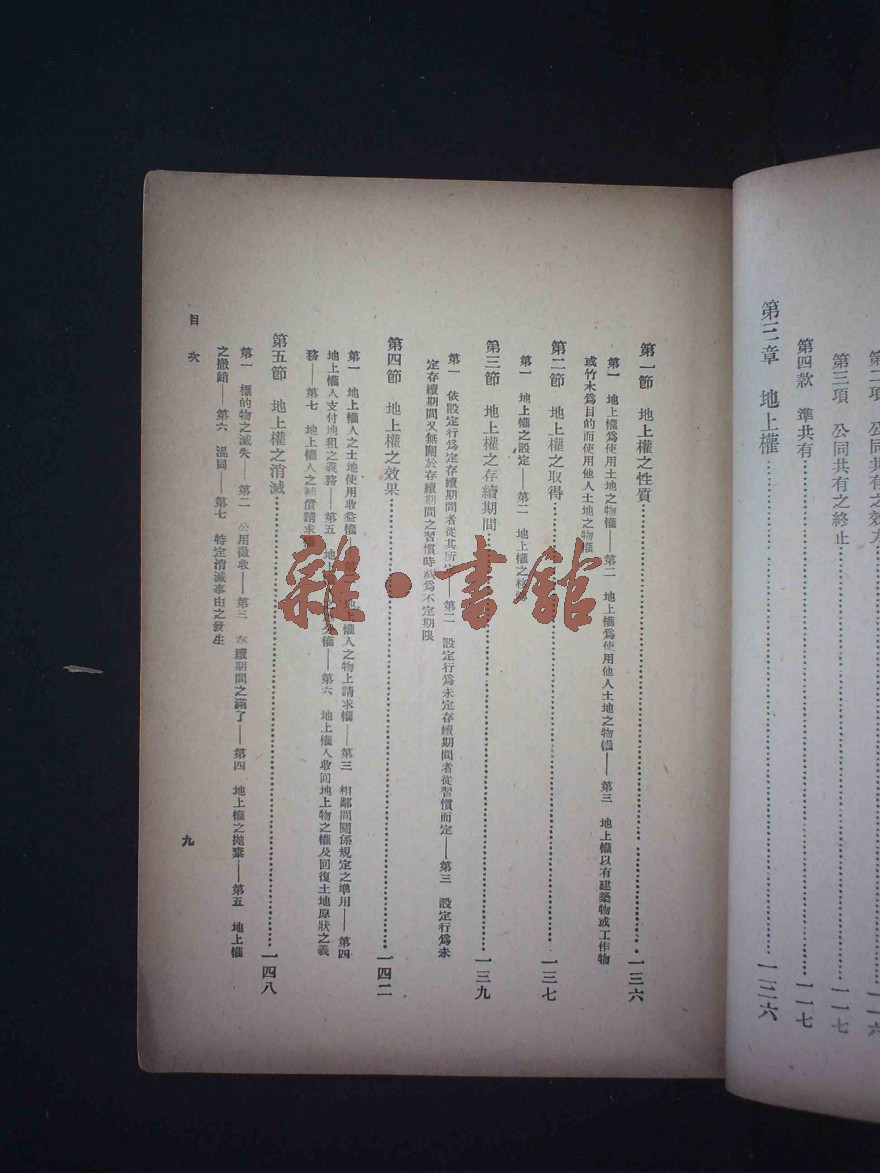 第二項 公同共有之效力……一一六
第三項 公同共有之終止……一一七
第四款 準共有……一一七
第三章 地上權……一三六
第一節 地上權之性質……一三六
第一 地上權爲使用土地之物權——第二 地上權爲使用他人土地之物權——第三 地上權以有建築物或工作物
或竹木爲目的而使用他人土地之物權
第二節 地上權之取得……一三七
第一 地上權之設定——第二 地上權之移轉
第三節 地上權之存續期間……一三九
第一 依設定行爲定存續期間者從其所定——第二 設定行爲未定存續期間者從習慣而定——第三 設定行爲未
定存續期間又無關於存續期間之習慣時視爲不定期限
第四節 地上權之效果……一四二
第一 地上權人之土地使用收益權——第二 地上權人之物上請求權——第三 相鄰間關係規定之準用——第四
地上權人支付地租之義務——第五 地上權人之 權——第六 地上權人收回地上物之權及回復土地原狀之義
務——第七 地上權人之補償請求權
第五節 地上權之消滅……一四八
第一 標的物之滅失——第二 公用徵收——第三 存續期間之滿了——第四 地上權之拋棄——第五 地上權
之撤銷——第六 混同——第七 特定消滅事由之發生
目次
九
雜·書館